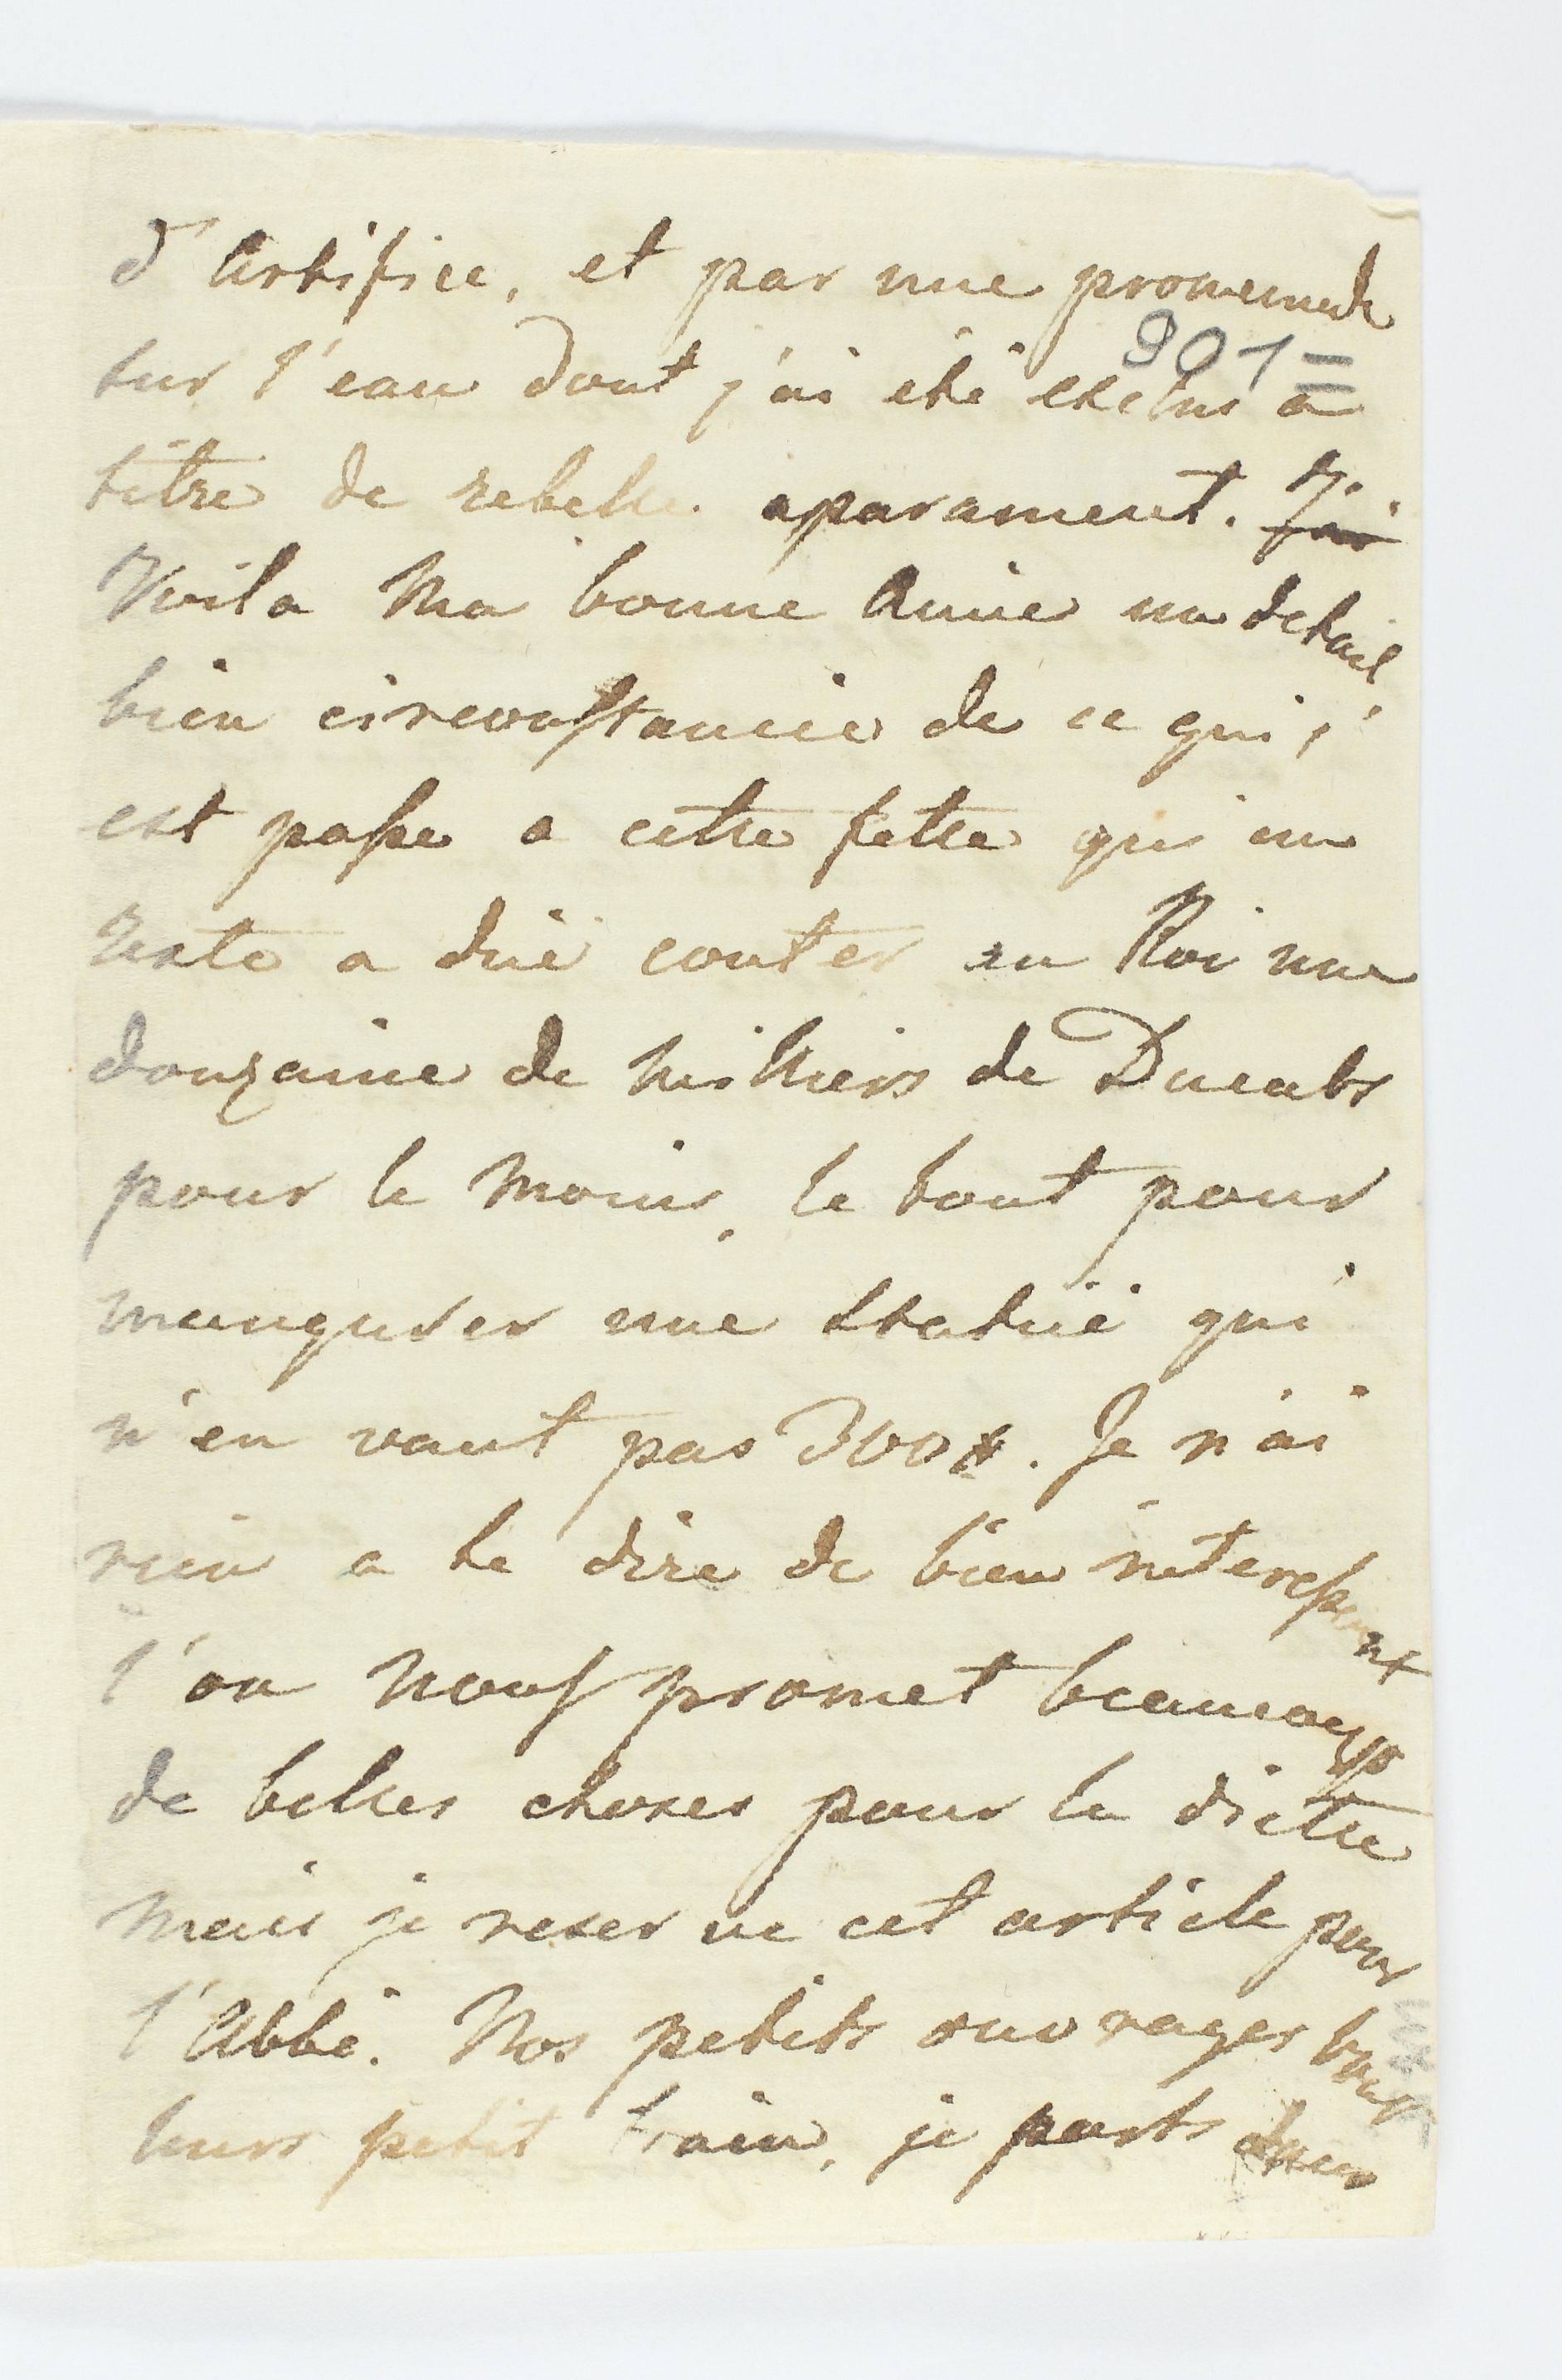 d'Artifice, et par une promenade
901=
sur l'eau dont j'ai eté exclus a
titre de rebelle aparament. J'ai
Voila Ma bonne Amie un detail
bien circonstancié de ce qui s'
est passe a cette fette qui au
reste a dué couter au Roi une
douzaine de Milliers de Ducats
pour le Moins, le tout pour
inaugurer une Statüe qui
n'en vaut pas 300#. Je n'ai
rien a te dire de bien interessant
l'on nous promet beaucoup
de belles choses pour la diette
Mais je reserve cet article pour
l'Abbé. Nos petits ouvrages vont
leurs petit train, je parts